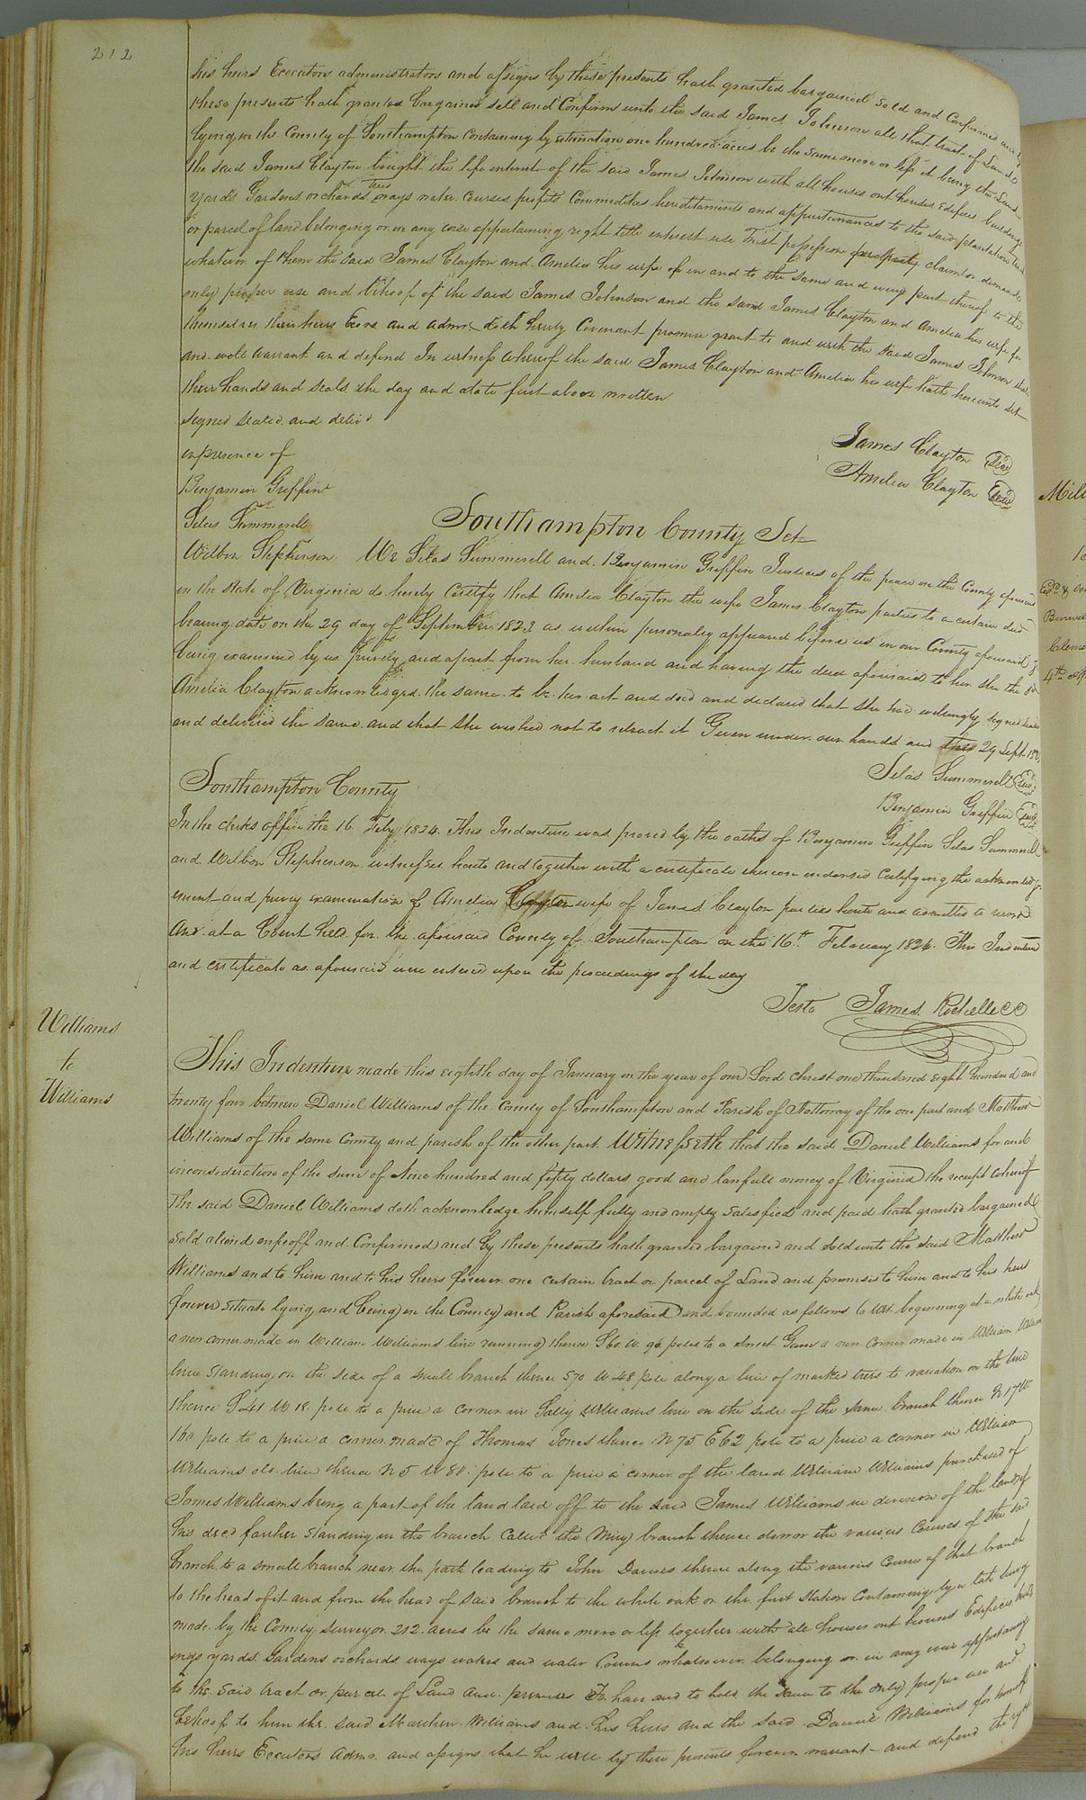 212
his heirs Executors administrators and assigns by these presents hath granted bargained sold and Confirmed and by
these presents hath granted bargained sell and Confirm unto the said James Johnson all that tract of Land
lying in the County of Southampton containing by estimation one hundred acres be the same more or less it being the Land
the said James Clayton bought the life interest of the said James Johnson with all houses out houses Edifices buildings
yards Gardens orchards trees ways water Courses profits Commodities hereditaments and appurtenances to the said plantation tract
or parcel of land belonging or in any wise appertaining right title interest use Trust possession property claim or demand
whatever of them the said James Clayton and Amelia his wife of in and to the same and every part thereof to the
only proper use and behoof of the said James Johnson and the said James Clayton and Amelia his wife for
themselves their heirs Exors and admrs doth hereby Covenant promise grant to and with the said James Johnson shall
and will warrant and defend In witness whereof the said James Clayton and Amelia his wife hath hereunto set
their hands and seals the day and date first above written
Signed sealed and deliv'd
in presence of
James Clayton Seal
Benjamin Griffin
Amelia Clayton Seal
Silas Summerell
Southampton County Sct
Wilson Stephenson We Silas Summerell and Benjamin Griffin Justices of the peace in the County aforesaid
in the State of Virginia do hereby Certify that Amelia Clayton the wife James Clayton parties to a certain deed
bearing date on the 29 day of September 1823 as within personally appeared before us in our County aforesaid &
being examined by us privily and apart from her husband and having the deed aforesaid to her she the sd
Amelia Clayton acknowledged the same to be her act and deed and declared that she had willingly signed sealed
and delivered the same and that she wished not to retract it Given under our hands and this 29 Sept
Silas Summerell Seal
Southampton County
Benjamin Griffin Seal
In the clerks office the 16 Feby 1824 This Indenture was proved by the oaths of Benjamin Griffin Silas Summerell
and Wilson Stephenson witnesses hereto and together with a certificate thereon endorsed Certifying the acknowledg-
ment and privy examination of Amelia Clayton wife of James Clayton parties hereto and admitted to record
And at a Court held for the aforesaid County of Southampton on the 16th February 1824 This Indenture
and certificate as aforesaid were entered upon the proceedings of the day
Teste James Rochelle CC
Williams
to
Williams
This Indenture made this eighth day of January in the year of our Lord Christ one thousand eight hundred and
twenty four between Daniel Williams of the County of Southampton and Parish of Nottoway of the one part and Matthew
Williams of the same County and parish of the other part Witnesseth that the said Daniel Williams for and
in consideration of the sum of Nine hundred and fifty dollars good and lawfull money of Virginia the receipt whereof
the said Daniel Williams doth acknowledge himself fully and amply satisfied and paid hath granted bargained
Sold aliend enfeoff and Confirmed and by these presents hath granted bargained and sold unto the said Matthew
Williams and to him and to his heirs forever one certain tract or parcel of Land and premises to him and to his heirs
forever Situate lying and being in the County and Parish aforesaid and bounded as follows to wit beginning at a white oak
a new corner made in William Williams line running thence S 60 W 96 pole to a Sweet Gum a new Corner made in William Williams
line Standing on the side of a small branch thence S 70 W 48 pole along a line of marked trees to variation on the line
thence S 41 W 18 pole to a pine a Corner in Sally Williams line on the side of the same branch thence N 17 W
160 pole to a pine a corner made of Thomas Jones thence N 75 E 62 pole to a pine a corner in William
Williams old line thence N 5 W 80 pole to a pine a corner of the land William Williams purchased of
James Williams being a part of the land laid off to the said James Williams in division of the land of
his decd farther Standing in the branch Called the (Miry) branch thence down the various Courses of the said
branch to a small branch near the path leading to John Davies thence along the various Course of that branch
to the head of it and from the head of said branch to the white oak on the first Station Containing by a late survey
made by the County Surveyor 212 acres be the same more or less together with all houses out houses Edifices build-
ings yards Gardens orchards ways waters and water Courses whatsoever belonging or in any wise appertaining
to the said tract or parcel of Land and premises To have and to hold the Same to the only proper use and
behoof to him the said Matthew Williams and his heirs and the said Daniel Williams for himself
his heirs Executors Admrs and assigns that he will by these presents forever warrant and defend the right